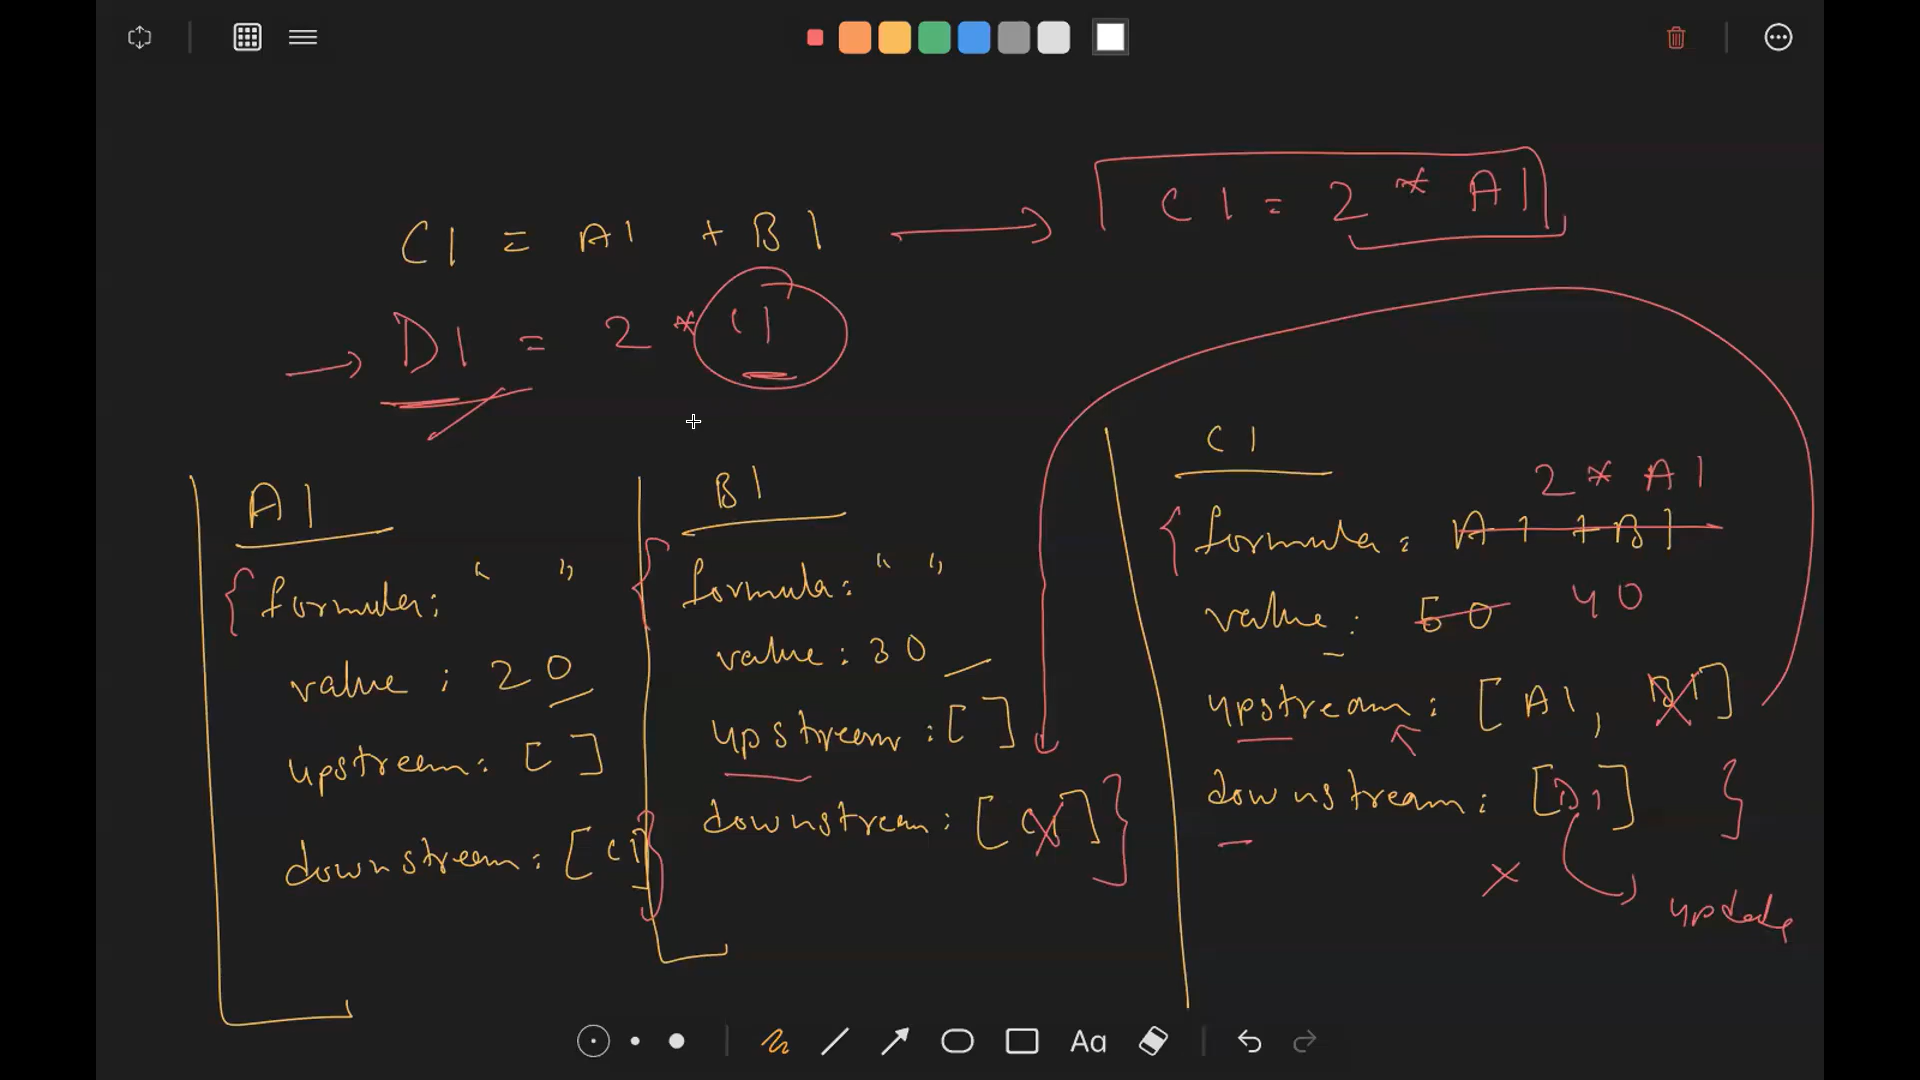 C1 = A1 + B1
C1 = 2 * A1
D1 = 2 * C1
A1
formula: " "
value: 20
upstream: [ ]
downstream: [C1]
B1
formula: " "
value: 30
upstream: [ ]
downstream: [C1]
C1
2 * A1
formula: A1 + B1
value: 50 40
upstream: [A1, B1]
downstream: [D1]
update
Aa